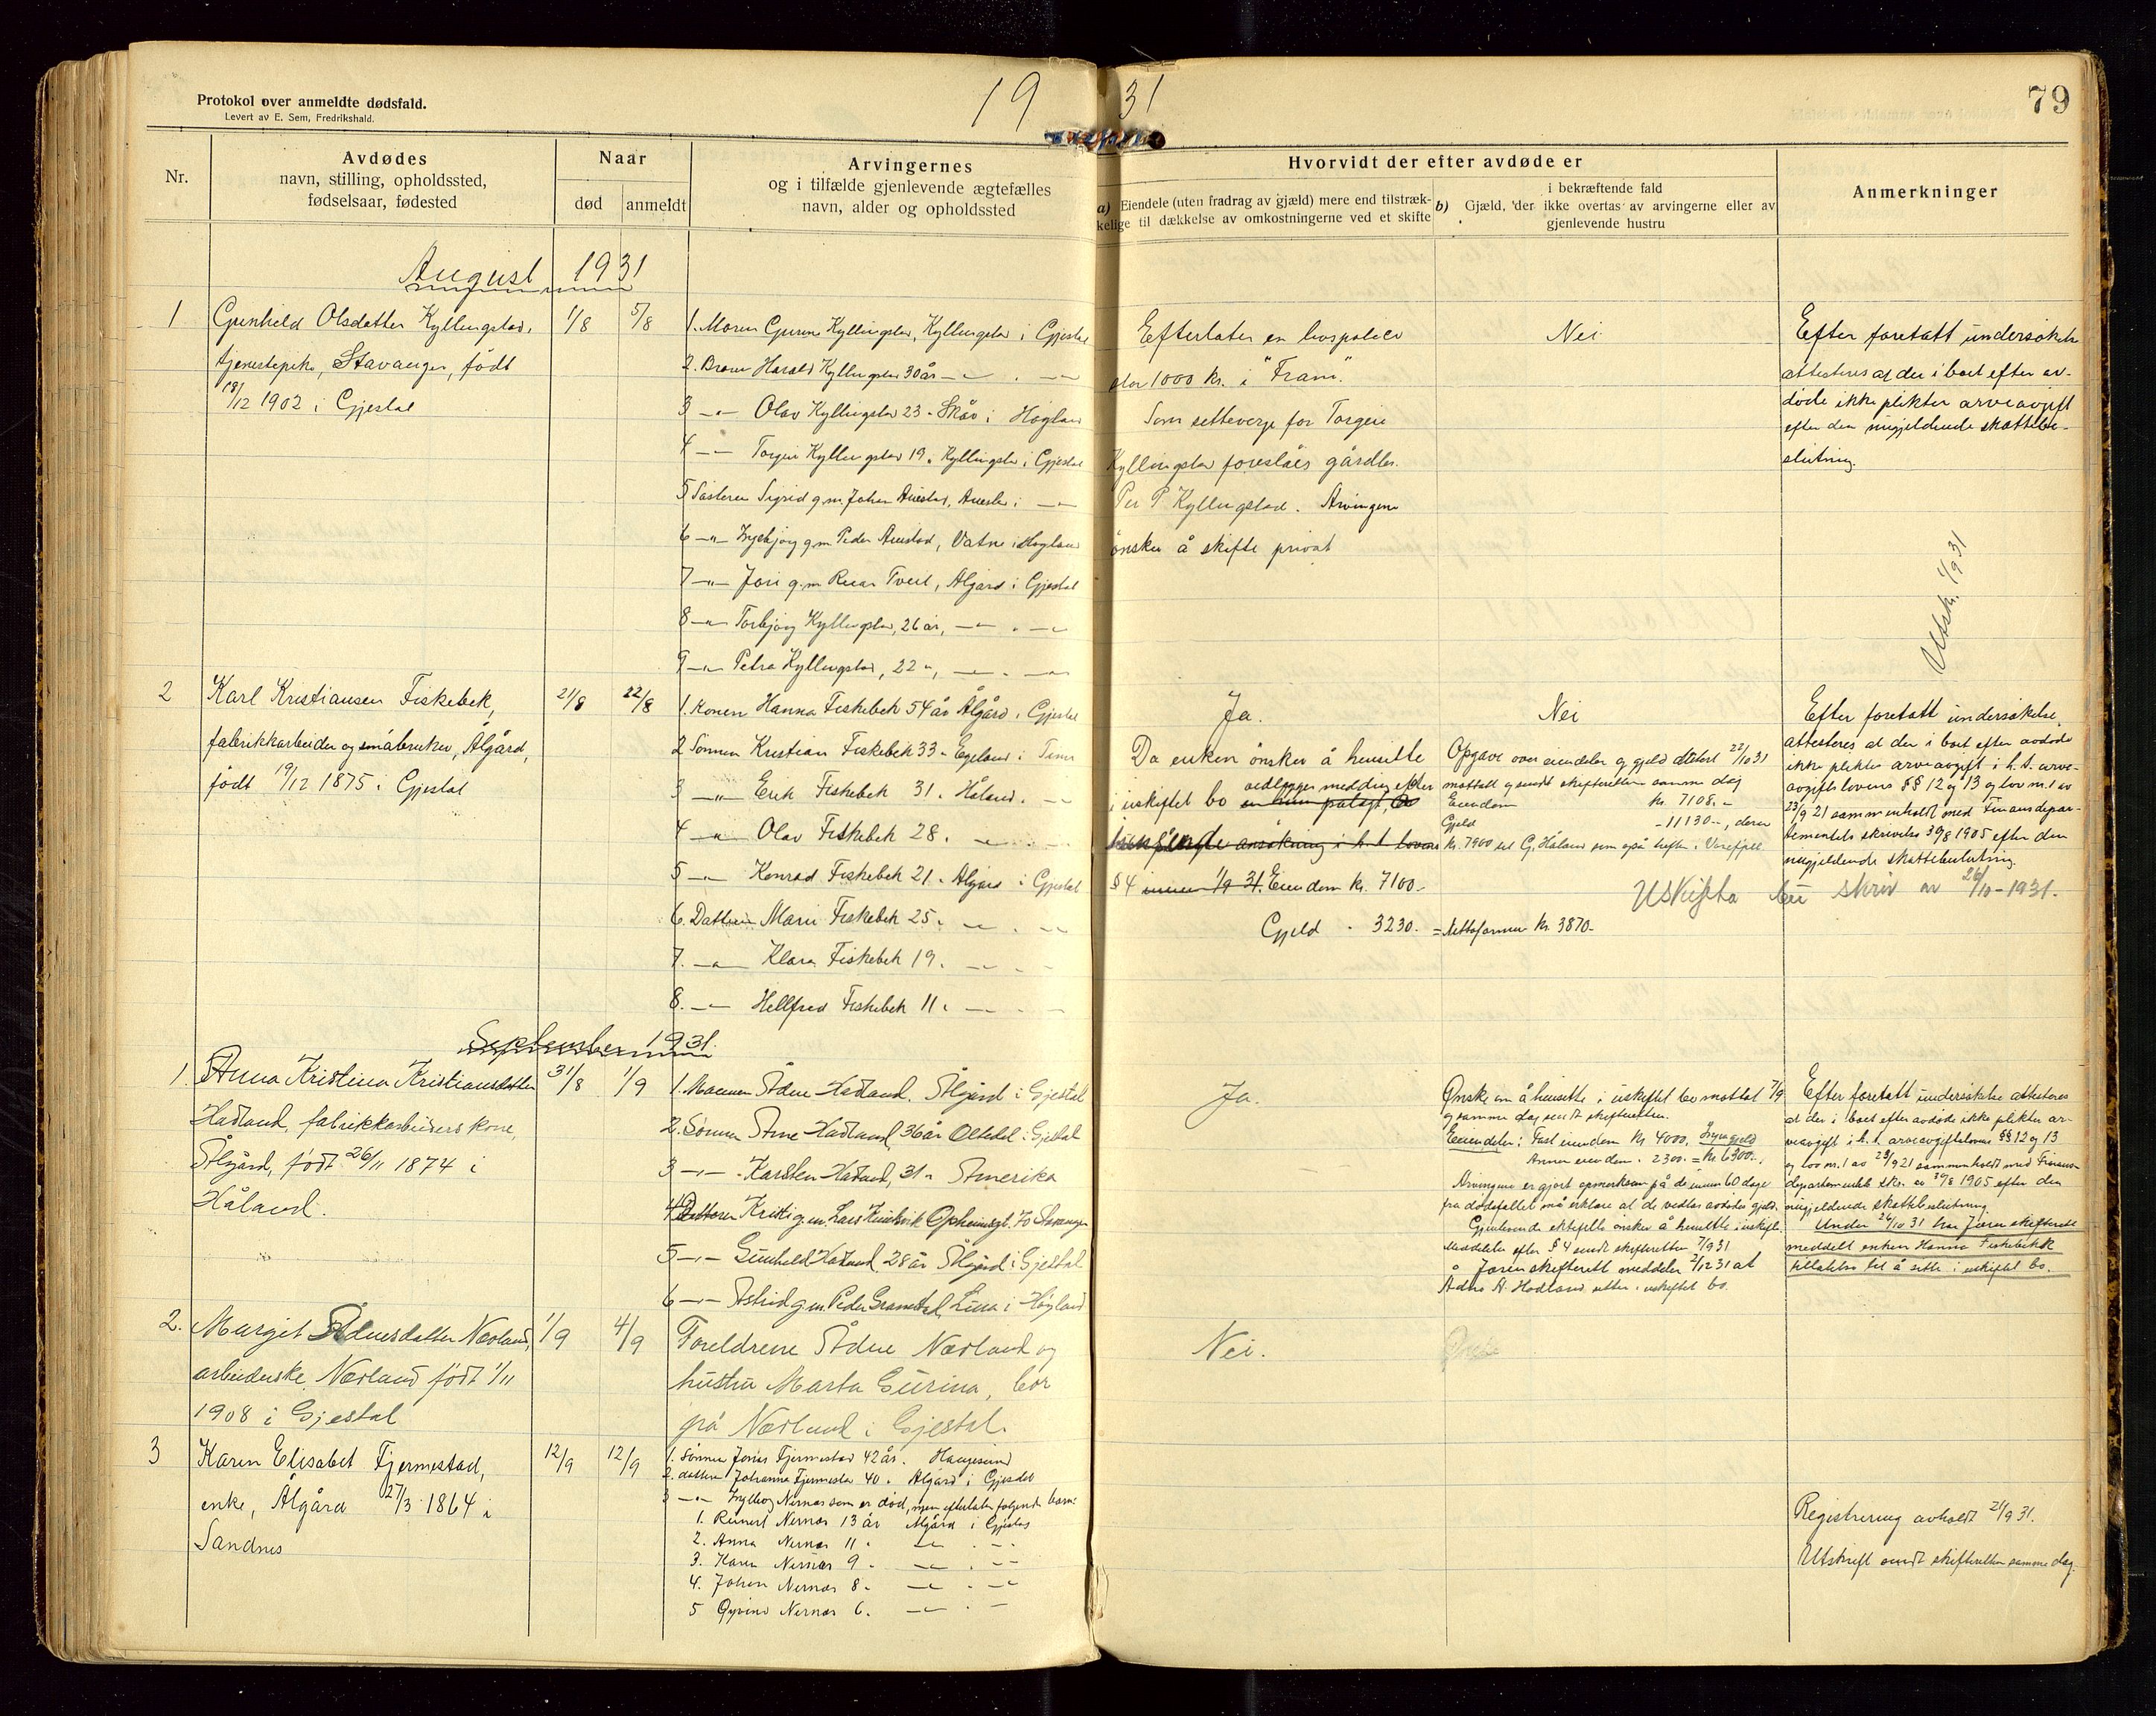 19 31
79
Protokol over anmeldte dødsfald.
Levert av E. Sem, Fredrikshald.
Nr.
Avdødes
navn, stilling, opholdssted,
fødselsaar, fødested
Naar
død
anmeldt
Arvingernes
og i tilfælde gjenlevende ægtefælles
navn, alder og opholdssted
Hvorvidt der efter avdøde er
a) Eiendele (uten fradrag av gjæld) mere end tilstræk-
kelige til dækkelse av omkostningerne ved et skifte
b) Gjæld, der i bekræftende fald
ikke overtas av arvingerne eller av
gjenlevende hustru
Anmerkninger
August 1931
1
Gunhild Olsdatter Kyllingstad,
tjenestepike, Stavanger, født
18/12 1902 i Gjestal
1/8
5/8
1. Moren Gurine Kyllingstad, Kyllingstad i Gjestal
2. Broren Harald Kyllingstad 30 år -"- . -"-
3 -"- Olav Kyllingstad 23 - Skår i Høgland
4 -"- Torgeir Kyllingstad 19. Kyllingstad i Gjestal
5 Søsteren Sigrid g.m. Johan Auestad, Auestad i -"-
6 -"- Ingebjørg g.m. Peder Auestad, Vatne i Høgland
7 -"- Jori g.m. Tveit, Ålgård i Gjestal
8 -"- Torbjørg Kyllingstad, 26 år, -"- . -"-
9 -"- Petra Kyllingstad, 22 -, -"- . -"-
Efterlater en livspolise
stor 1000 kr. i "Fram".
Som setteverge for Torgeir
Kyllingstad foreslåes gårdbr.
Per P Kyllingstad. Arvingene
ønsker å skifte privat
Nei
Efter foretatt undersøkelse
attesteres at der i boet efter av-
døde ikke plikter arveavgift
efter den nugjeldende skattebe-
slutning.
Utskr. 1/9 31
2
Karl Kristiansen Fiskebek,
fabrikkarbeider og småbruker, Ålgård,
født 19/12 1875 i Gjestal
21/8
22/8
1. Konen Hanna Fiskebek 54 år Ålgård i Gjestal
2 Sønnen Kristian Fiskebek 33 - Egeland i Time
3 -"- Erik Fiskebek 31. Håland. -"-
4 -"- Olav Fiskebek 28. -"-
5 -"- Konrad Fiskebek 21 - Ålgård i Gjestal
6. Datteren Marie Fiskebek 25. -"- . -"-
7. -"- Klara Fiskebek 19. -"- . -"-
8. -"- Hellfred Fiskebek 11. -"- . -"-
Ja.
Da enken ønsker å hensitte
i uskiftet bo vedlegges melding efter
en hun pålagt, å
ansøkning i h. t. lovens
§ 4 innen 1/9 31. Eiendom kr. 7100.-
Gjeld - 3230.- = Nettoformue kr. 3870.-
Nei
Opgave over eiendeler og gjeld datert 22/10 31
mottatt og sendt skifteretten samme dag
Eiendom kr. 7108.-
Gjeld - 11130.-, derav
kr. 7900 til G. Håland som også hefter i
Efter foretatt undersøkelse,
attesteres at der i boet efter avdøde
ikke plikter arveavgift i h.t. arve-
avgiftslovens §§ 12 og 13 og lov nr. 1 av
23/9 21 sammenholdt med Finansdepar-
tementets skrivelse 30/8 1905 efter den
nugjeldende skattebeslutning.
Uskifta bu skriv av 26/10-1931.
September 1931.
1.
Anna Kristina Kristiansdatter
Hadland, fabrikkarbeiders kone,
Ålgård, født 26/11 1874 i
Håland.
31/8
1/9
1. Mannen Ådne Hadland. Ålgård i Gjestal
2. Sønnen Arne Hadland, 36 år Oltedal i Gjestal
3 -"- Karsten Hadland, 31 - Amerika
4 Datteren Kristi g.m. Lars Opheimsgt. 70 Stavanger
5 -"- Gunhild Hadland 28 år Ålgård i Gjestal
6 -"- Astrid g.m. Peder Gramstad, Lura i Høyland
Ja.
Ønske om å hensitte i uskiftet bo mottat 7/9
og samme dag sendt skifteretten.
Eiendeler: Fast eiendom kr 4000. Ingen gjeld
Annen eiendom - 2300.- = kr. 6300.-.
Arvingene er gjort opmerksom på de innen 60 dage
fra dødsfallet må erklære at de vedtar avdødes gjeld.
Gjenlevende ektefelle ønsker å hensitte i uskiftet.
Meddelelse efter § 4 sendt skifteretten 7/9 31
Jæren skifterett meddeler 2/12 31 at
Ådne A. Hadland sitter i uskiftet bo.
Efter foretatt undersøkelse attesteres
at der i boet efter avdøde ikke plikter ar-
veavgift i h.t. arveavgiftslovens §§ 12 og 13
og lov nr. 1 av 23/9 21 sammenholdt med Finans-
departementets skr. av 30/8 1905 efter den
nugjeldende skattebeslutning.
Under 26/10 31 har Jæren skifterett
meddelt enken Hanna Fiskebekk
tillatelse til å sitte i uskiftet bo.
2.
Margit Ådnesdatter Nærland,
arbeiderske, Nærland født 1/11
1908 i Gjestal
1/9
4/9
Foreldrene Ådne Nærland og
hustru Marta Gurina, bor
på Nærland i Gjestal.
Nei.
Ønske
3
Karen Elisabet Fjermestad,
enke, Ålgård 27/3 1864 i
Sandnes
12/9
12/9
1. Sønnen Jonas Fjermestad 42 år. Haugesund
2. datteren Johanna Fjermestad 40. Ålgård i Gjesdal
3 -"- Ingeborg Nernæs som er død, men efterlater følgende barn:
1. Reinert Nernæs 13 år Ålgård i Gjesdal
2. Anna Nernæs 11 - -"- . -"-
3. Karen Nernæs 9 - -"- . -"-
4. Johan Nernæs 8 - -"- . -"-
5 Øyvind Nernæs 6. -"- . -"-
Registrering avholdt 21/9 31.
Utskrift sendt skifteretten samme dag.